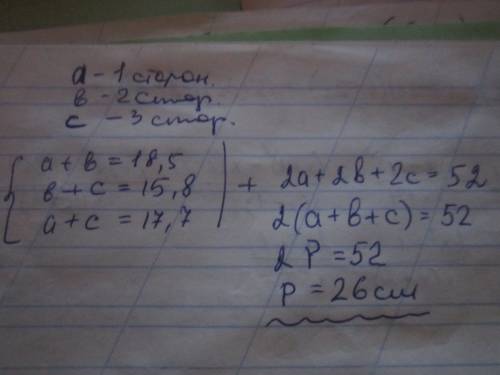 a - 1 сторон.
в - 2 стор.
с - 3 стор.
a + в = 18,5
в + с = 15,8
a + c = 17,7
+
2a + 2в + 2c = 52
2(a + в + c) = 52
2P = 52
P = 26 см